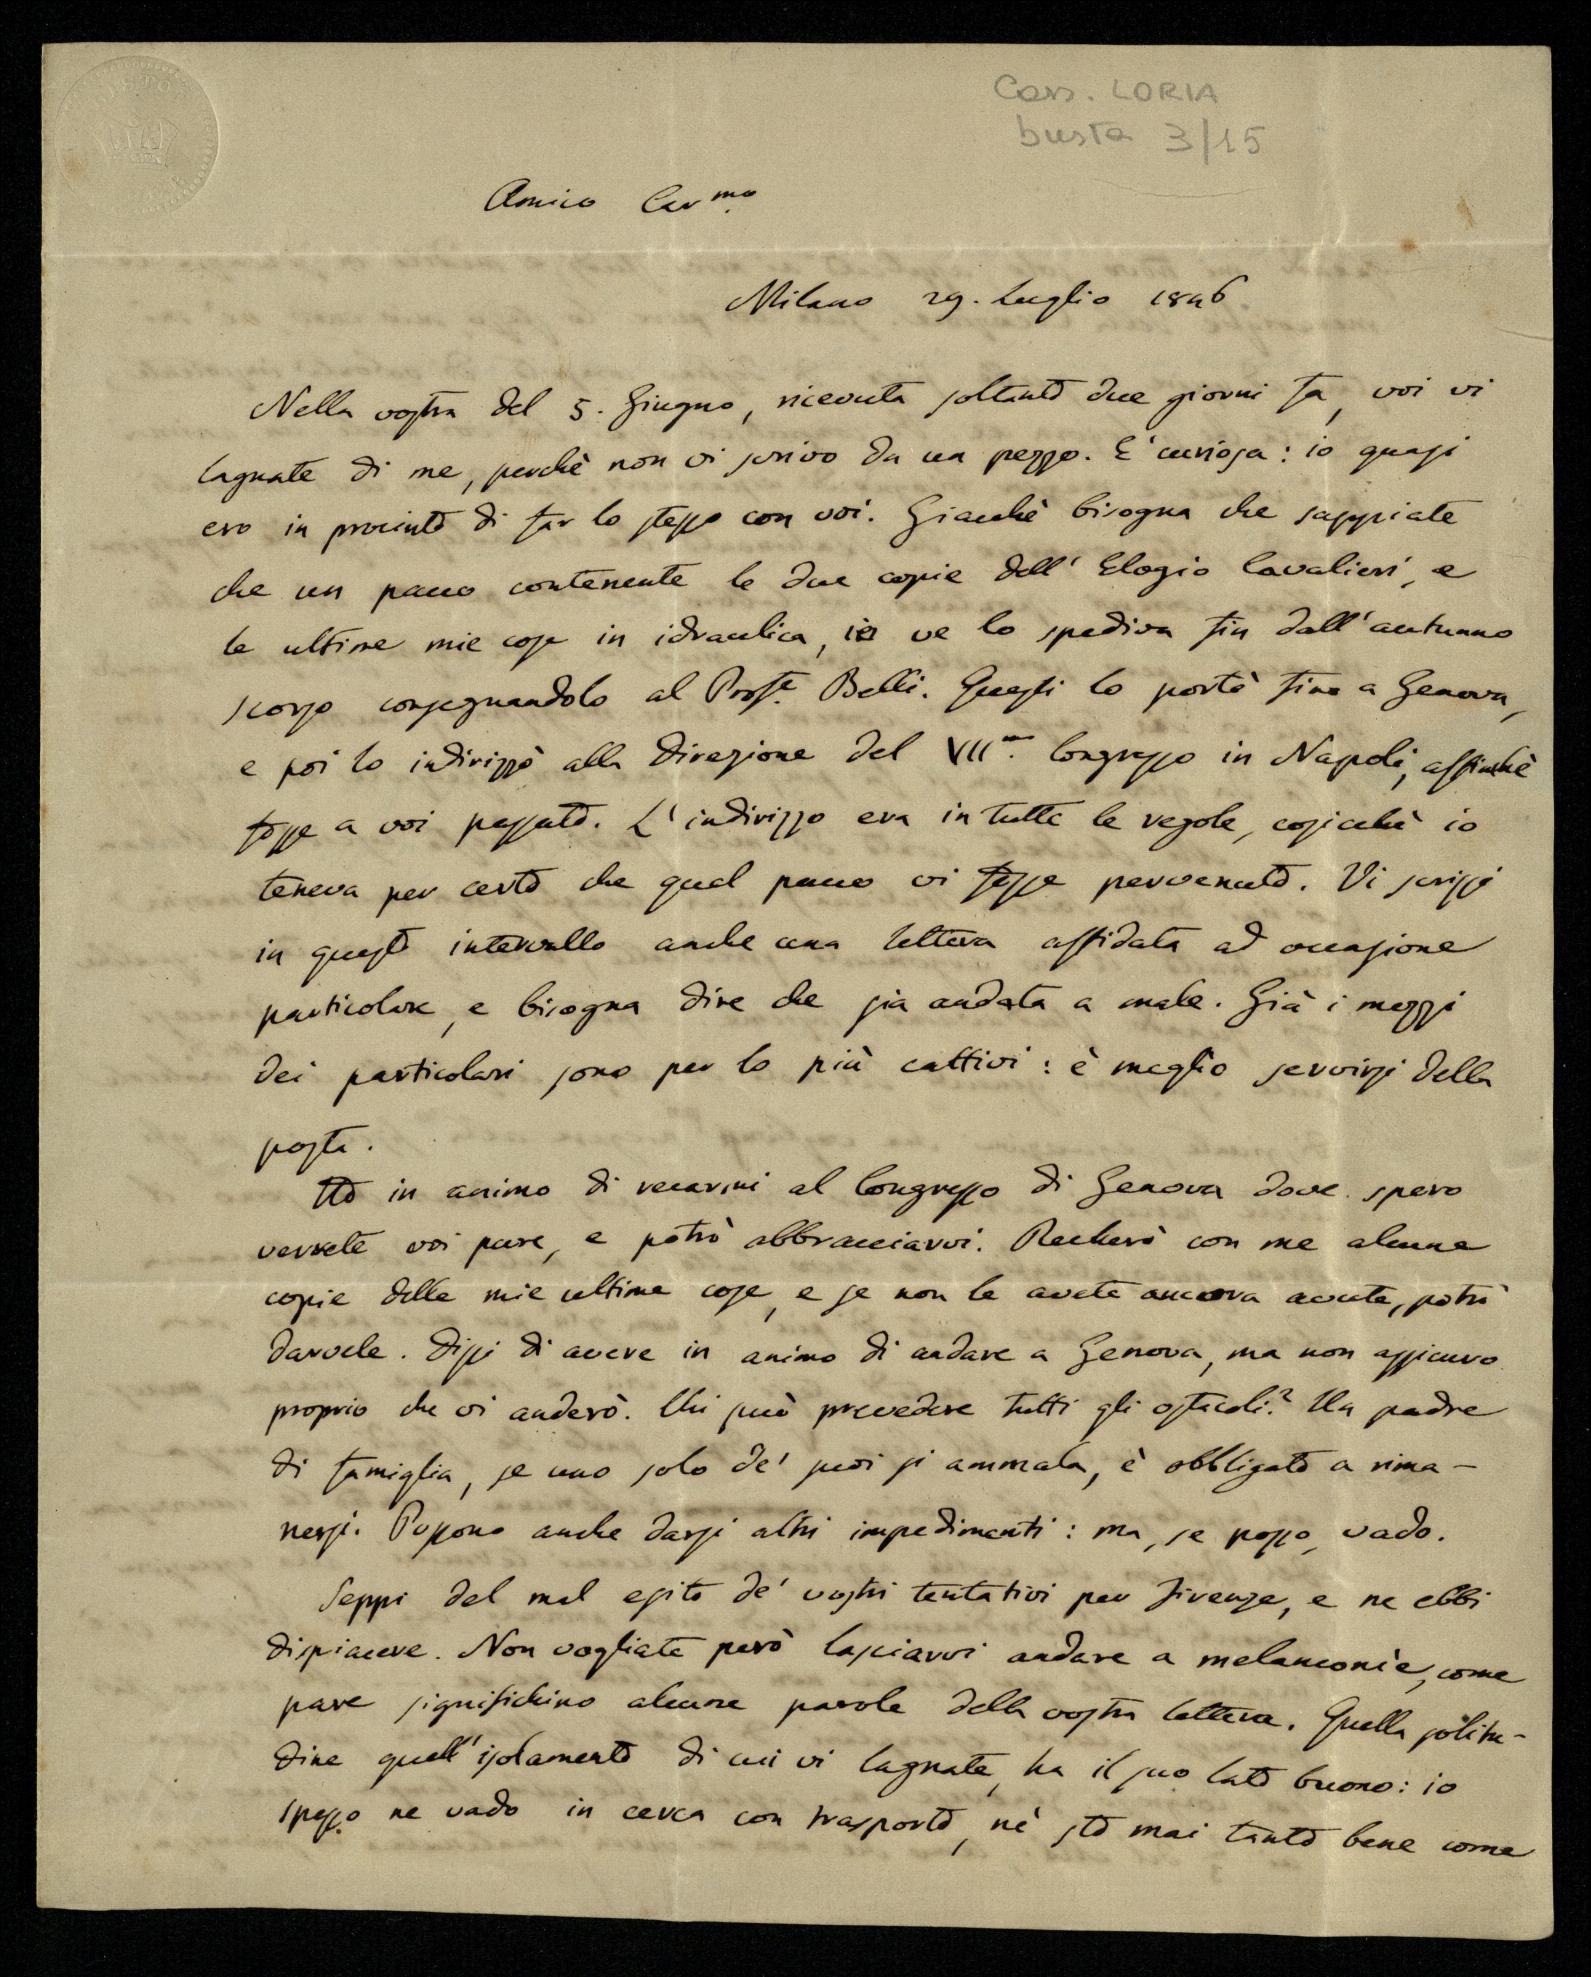 Cass. LORIA
busta 3/15
Amico Car.mo
Milano 29. Luglio 1846
Nella vostra del 5. Giugno, ricevuta soltanto due giorni fa, voi vi
lagnate di me, perchè non vi scrivo da un pezzo. E' curiosa: io quasi
ero in procinto di far lo stesso con voi. Giacchè bisogna che sappiate
che un pacco contenente le due copie dell' Elogio Cavalieri, e
le ultime mie cose in idraulica, io ve lo spediva fin dall'autunno
scorso consegnandolo al Profe. Belli. Questi lo portò fino a Genova,
e poi lo indirizzò alla Direzione del VIImo. Congresso in Napoli, affinchè
fosse a voi passato. L'indirizzo era in tutte le regole, cosicchè io
teneva per certo che quel pacco vi fosse pervenuto. Vi scrissi
in questo intervallo anche una lettera affidata ad occasione
particolare, e bisogna dire che sia andata a male. Già i mezzi
dei particolari sono per lo più cattivi: è meglio servirsi della
posta.
Ho in animo di recarmi al Congresso di Genova dove spero
verrete voi pure, e potrò abbracciarvi. Recherò con me alcune
copie delle mie ultime cose, e se non le avete ancora avute, potrò
darvele. Dissi di avere in animo di andare a Genova, ma non assicuro
proprio che vi anderò. Chi può prevedere tutti gli ostacoli? Un padre
di famiglia, se uno solo de' suoi si ammala, è obbligato a rima-
nersi. Possono anche darsi altri impedimenti: ma, se posso, vado.
Seppi del mal esito de' vostri tentativi per Firenze, e ne ebbi
dispiacere. Non vogliate però lasciarvi andare a melanconie, come
pare significhino alcune parole della vostra lettera. Quella solitu-
dine quell'isolamento di cui vi lagnate, ha il suo lato buono: io
spesso ne vado in cerca con trasporto, nè sto mai tanto bene come